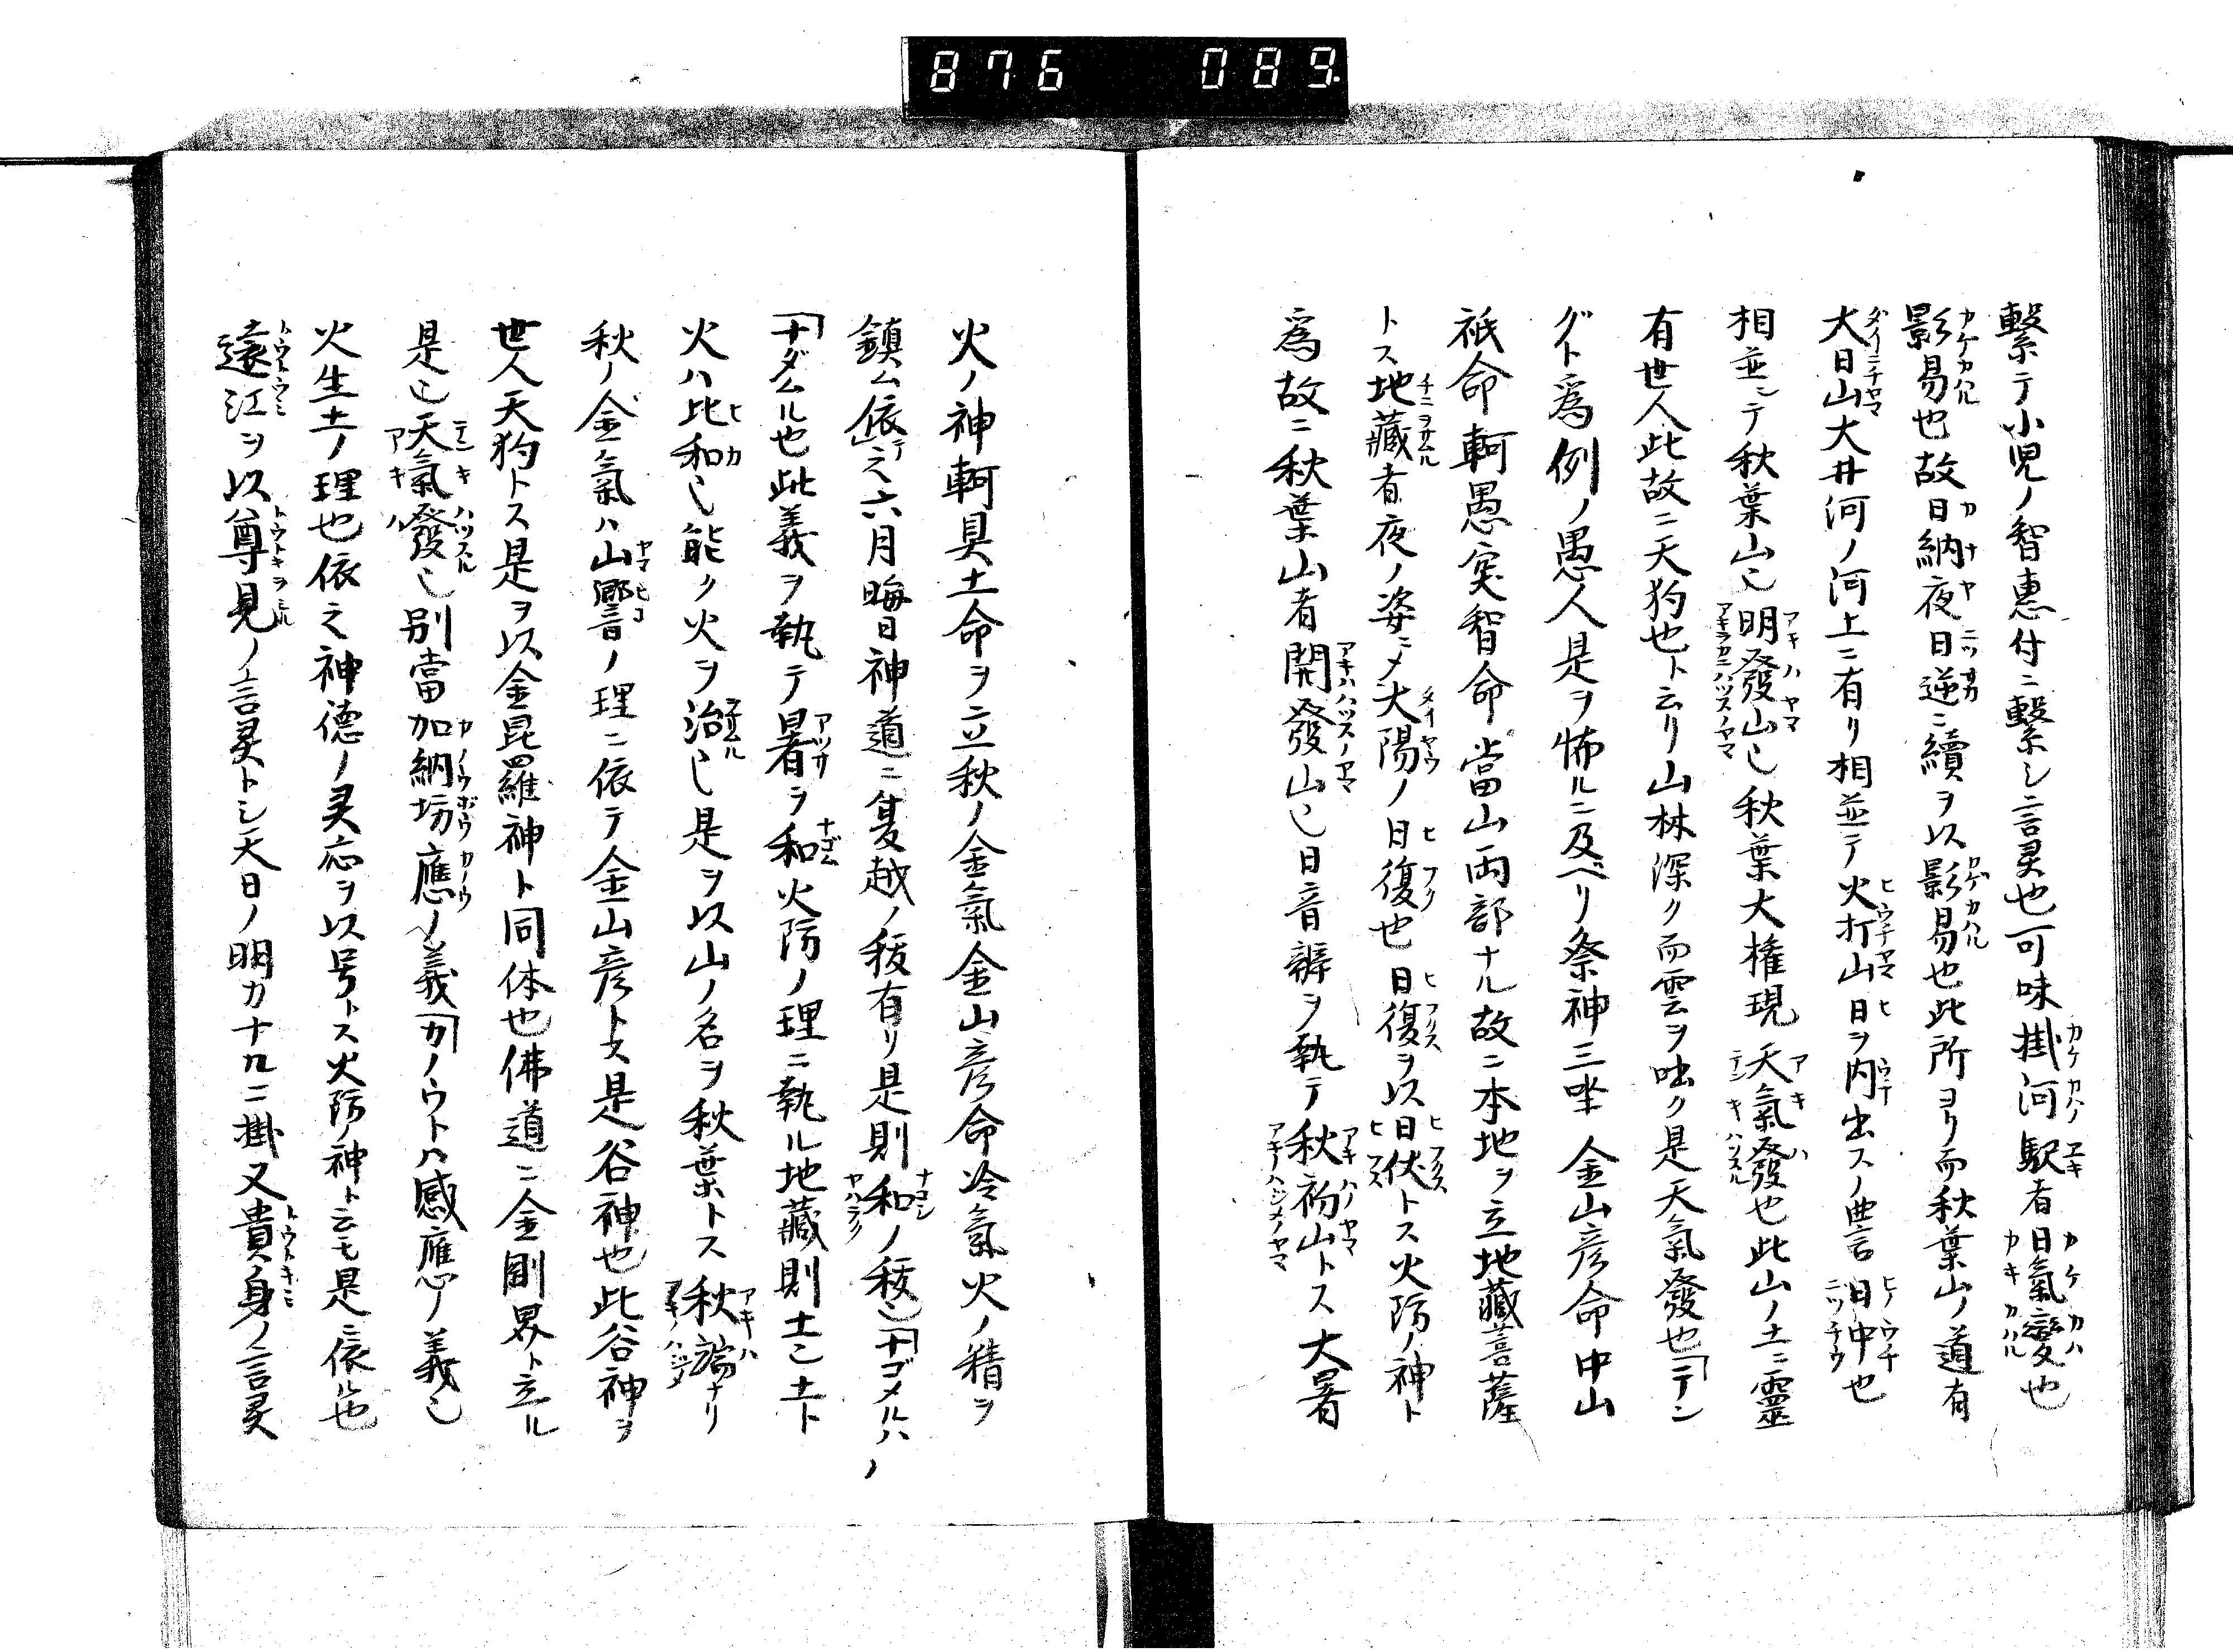 876 089
繋テ小児ノ智恵付ニ繋シ言灵也可味掛河駅者日氣變也
影易也故日納夜日逆ニ續ヲ以影易也此所ヨリ而秋葉山ノ道有
大日山大井河ノ河上ニ有リ相並テ火打山日ヲ内出スノ豊言日中也
相並ンテ秋葉山也明發山也秋葉大権現天氣發也此山ノ土ニ靈
有世人此故ニ天狗也ト云リ山林深ク而雲ヲ吐ク是天氣發也テン
グト為例ノ愚人是ヲ怖ルニ及ベリ祭神三坐金山彦命中山
祇命軻愚突智命当山両部ナル故ニ本地ヲ立地藏菩薩
トス地藏者夜ノ姿ニメ大陽ノ日復也日復ヲ以日伏トス火防ノ神ト
為故ニ秋葉山者開發山也日音辨ヲ執テ秋初山トス大暑
火ノ神軻具土命ヲ立秋ノ金氣金山彦命冷氣火ノ精ヲ
鎮ム依テ之六月晦日神道ニ夏越ノ秡有リ是則和ノ秡也ナゴメルハノ
ナダムル也此義ヲ執テ暑ヲ和火防ノ理ニ執ル地藏則土也土ト
火ハ比和也能ク火ヲ治也是ヲ以山ノ名ヲ秋葉トス秋端ナリ
秋ノ金氣ハ山響ノ理ニ依テ金山彦ト云是谷神也此谷神ヲ
世人天狗トス是ヲ以金昆羅神ト同体也佛道ニ金剛界ト立ル
是也天氣發也別當加納坊應ノ義カノウトハ感應ノ義也
火生土ノ理也依之神徳ノ灵応ヲ以号トス火防ノ神ト云モ是ニ依ル也
遠江ヲ以尊見ノ言灵トシ天日ノ明カナルニ掛又貴身ノ言灵